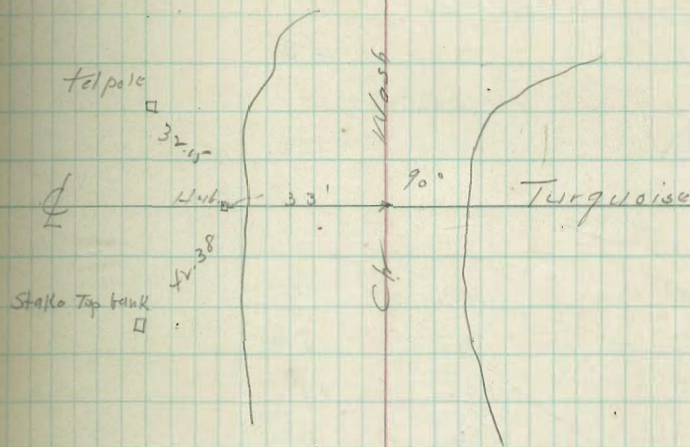 Tel pole
32.15
Wash
90°
℄
Hub
33'
Turquoise
38
Ch.
Stake Top bank